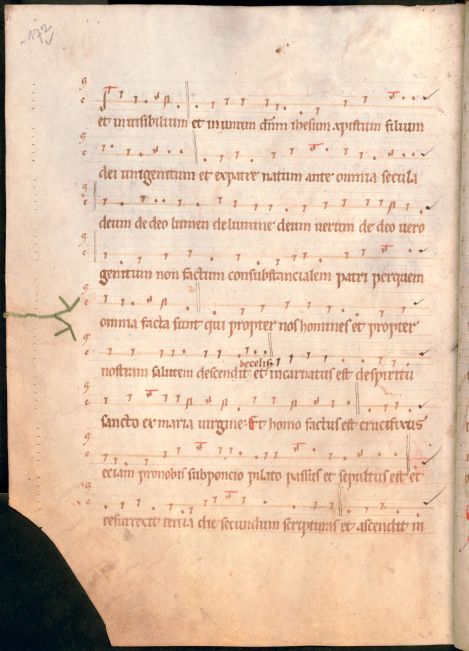 172
et invisibilium et in unum dnm ihesum xpistum filium
dei unigenitum et expatre natum ante omnia secula
deum de deo lumen de lumine deum verum de deo vero
genitum non factum consubstancialem patri perquem
omnia facta sunt qui propter nos homines et propter
decelis
nostram salutem descendit et incarnatus est despiritu
sancto ex maria virgine: Et homo factus est crucifixus
eciam pronobis subponcio pilato passus et sepultus est et
resurrexit tercia die secundum scripturas et ascendit in